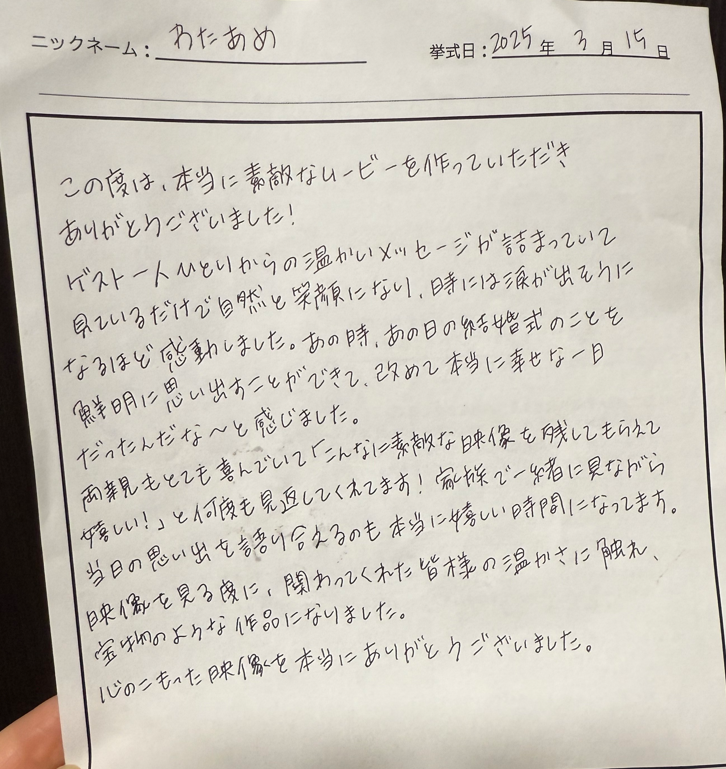 ニックネーム： わたあめ
挙式日：2025年 3月 15日
この度は、本当に素敵なムービーを作っていただき
ありがとうございました！
ゲスト一人ひとりからの温かいメッセージが詰まっていて
見ているだけで自然と笑顔になり、時には涙が出そうに
なるほど感動しました。あの時、あの日の結婚式のことを
鮮明に思い出すことができて、改めて本当に幸せな一日
だったんだな〜と感じました。
両親もとても喜んでいて「こんなに素敵な映像を残してもらえて
嬉しい！」と何度も見返してくれてます！家族で一緒に見ながら
当日の思い出を語り合えるのも本当に嬉しい時間になってます。
映像を見る度に、関わってくれた皆様の温かさに触れ、
宝物のような作品になりました。
心のこもった映像を本当にありがとうございました。